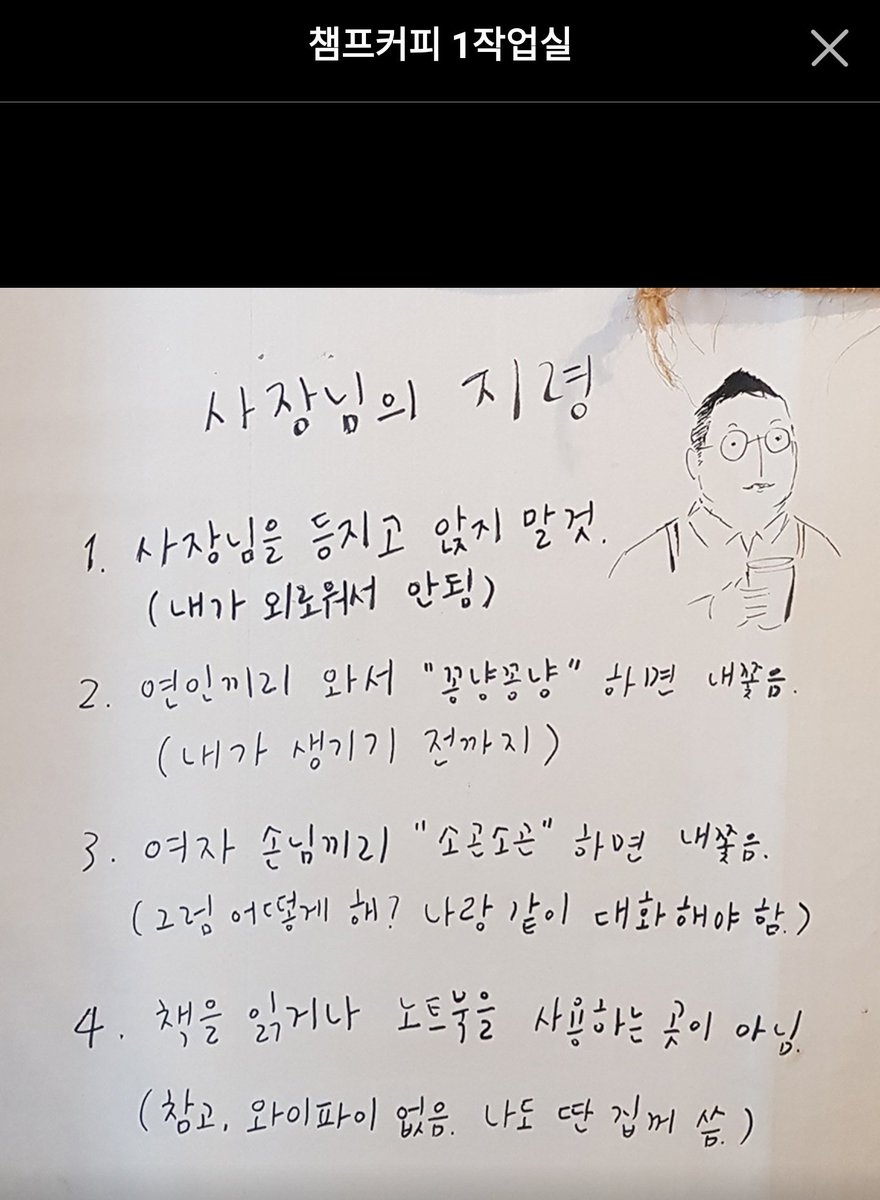 챔프커피 1작업실
사장님의 지령
1. 사장님을 등지고 앉지 말것.
(내가 외로워서 안됨)
2. 연인끼리 와서 "꽁냥꽁냥" 하면 내쫓음.
(내가 생기기 전까지)
3. 여자 손님끼리 "소곤소곤" 하면 내쫓음.
(그럼 어떻게 해? 나랑 같이 대화해야 함.)
4. 책을 읽거나 노트북을 사용하는 곳이 아님.
(참고, 와이파이 없음. 나도 딴 집꺼 씀.)